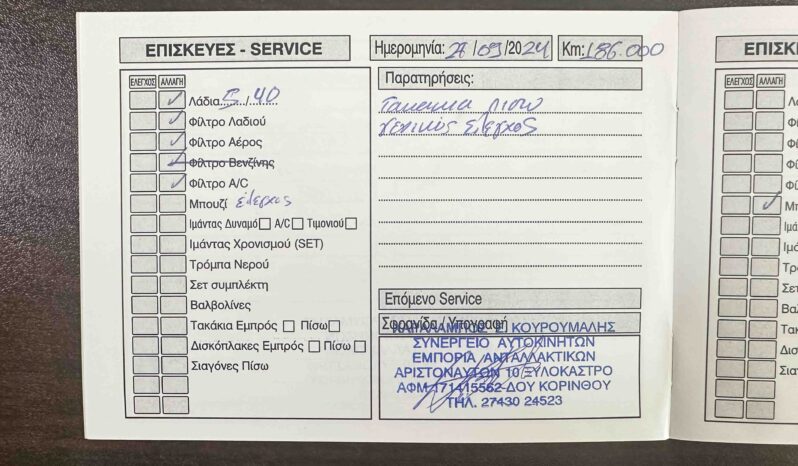 ΕΠΙΣΚΕΥΕΣ - SERVICE
ΕΛΕΓΧΟΣ ΑΛΛΑΓΗ
Λάδια 5 / 40
Φίλτρο Λαδιού
Φίλτρο Αέρος
Φίλτρο Βενζίνης
Φίλτρο A/C
Μπουζί έλεγχος
Ιμάντας Δυναμό A/C Τιμονιού
Ιμάντας Χρονισμού (SET)
Τρόμπα Νερού
Σετ συμπλέκτη
Βαλβολίνες
Τακάκια Εμπρός Πίσω
Δισκόπλακες Εμπρός Πίσω
Σιαγόνες Πίσω
Ημερομηνία: 27/09/2024 Km: 186.000
Παρατηρήσεις:
Τακακια πισω
γενικός έλεγχος
Επόμενο Service
Σφραγίδα / Υπογραφή
ΚΟΥΡΟΥΜΑΛΗΣ
ΣΥΝΕΡΓΕΙΟ ΑΥΤΟΚΙΝΗΤΩΝ
ΕΜΠΟΡΙΑ ΑΝΤΑΛΛΑΚΤΙΚΩΝ
ΑΡΙΣΤΟΝΑΥΤΩΝ 10 ΞΥΛΟΚΑΣΤΡΟ
ΑΦΜ 171415562-ΔΟΥ ΚΟΡΙΝΘΟΥ
ΤΗΛ. 27430 24523
ΕΠΙΣΚ
ΕΛΕΓΧΟΣ ΑΛΛΑΓΗ
Λά
Φί
Φί
Φί
Φί
Μπ
Ιμά
Ιμά
Τρ
Σετ
Βα
Τακ
Δισ
Σια